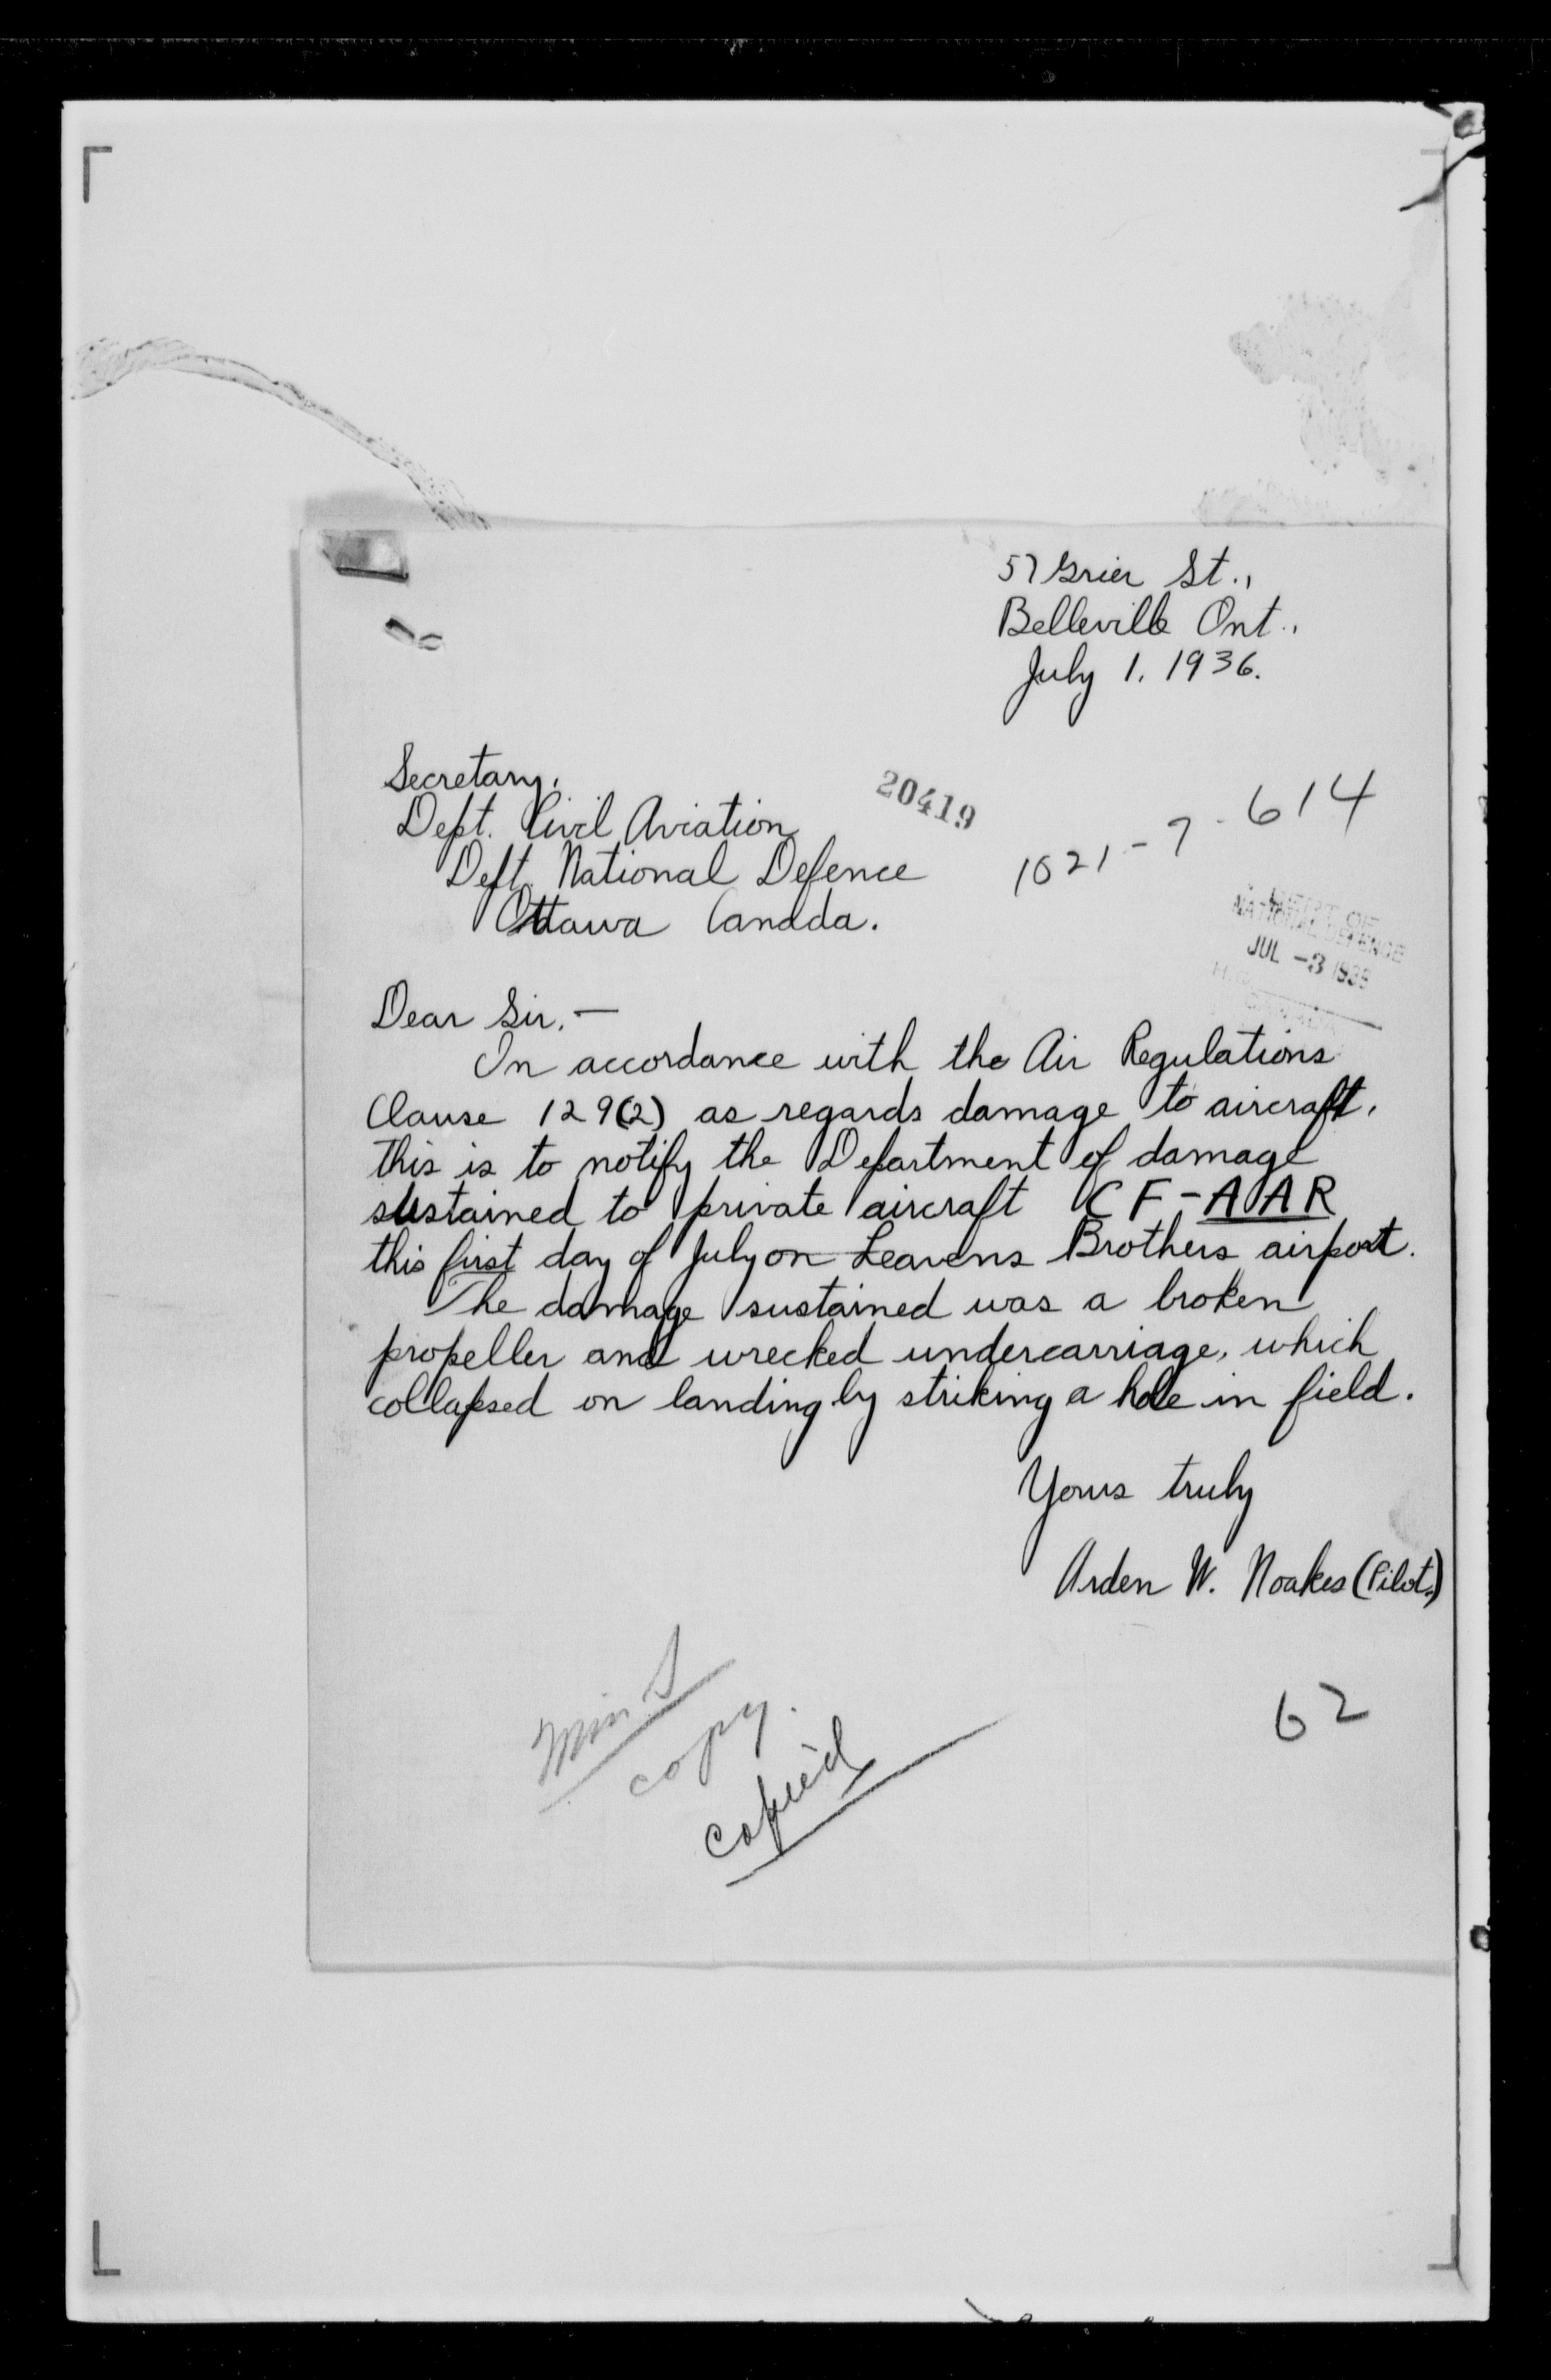 57 Grier St.,
Belleville Ont.,
July 1. 1936.
Secretary,
Dept. Civil Aviation
Dept. National Defence
Ottawa Canada.
20419
1021-7-614
DEPT OF
NATIONAL DEFENCE
JUL -3 1936
Dear Sir,—
In accordance with the Air Regulations
Clause 129(2) as regards damage to aircraft,
this is to notify the Department of damage
sustained to private aircraft CF-AAR
this first day of July on Leavens Brothers airport.
The damage sustained was a broken
propeller and wrecked undercarriage, which
collapsed on landing by striking a hole in field.
Yours truly
Arden W. Noakes (Pilot.)
62
copy.
copied